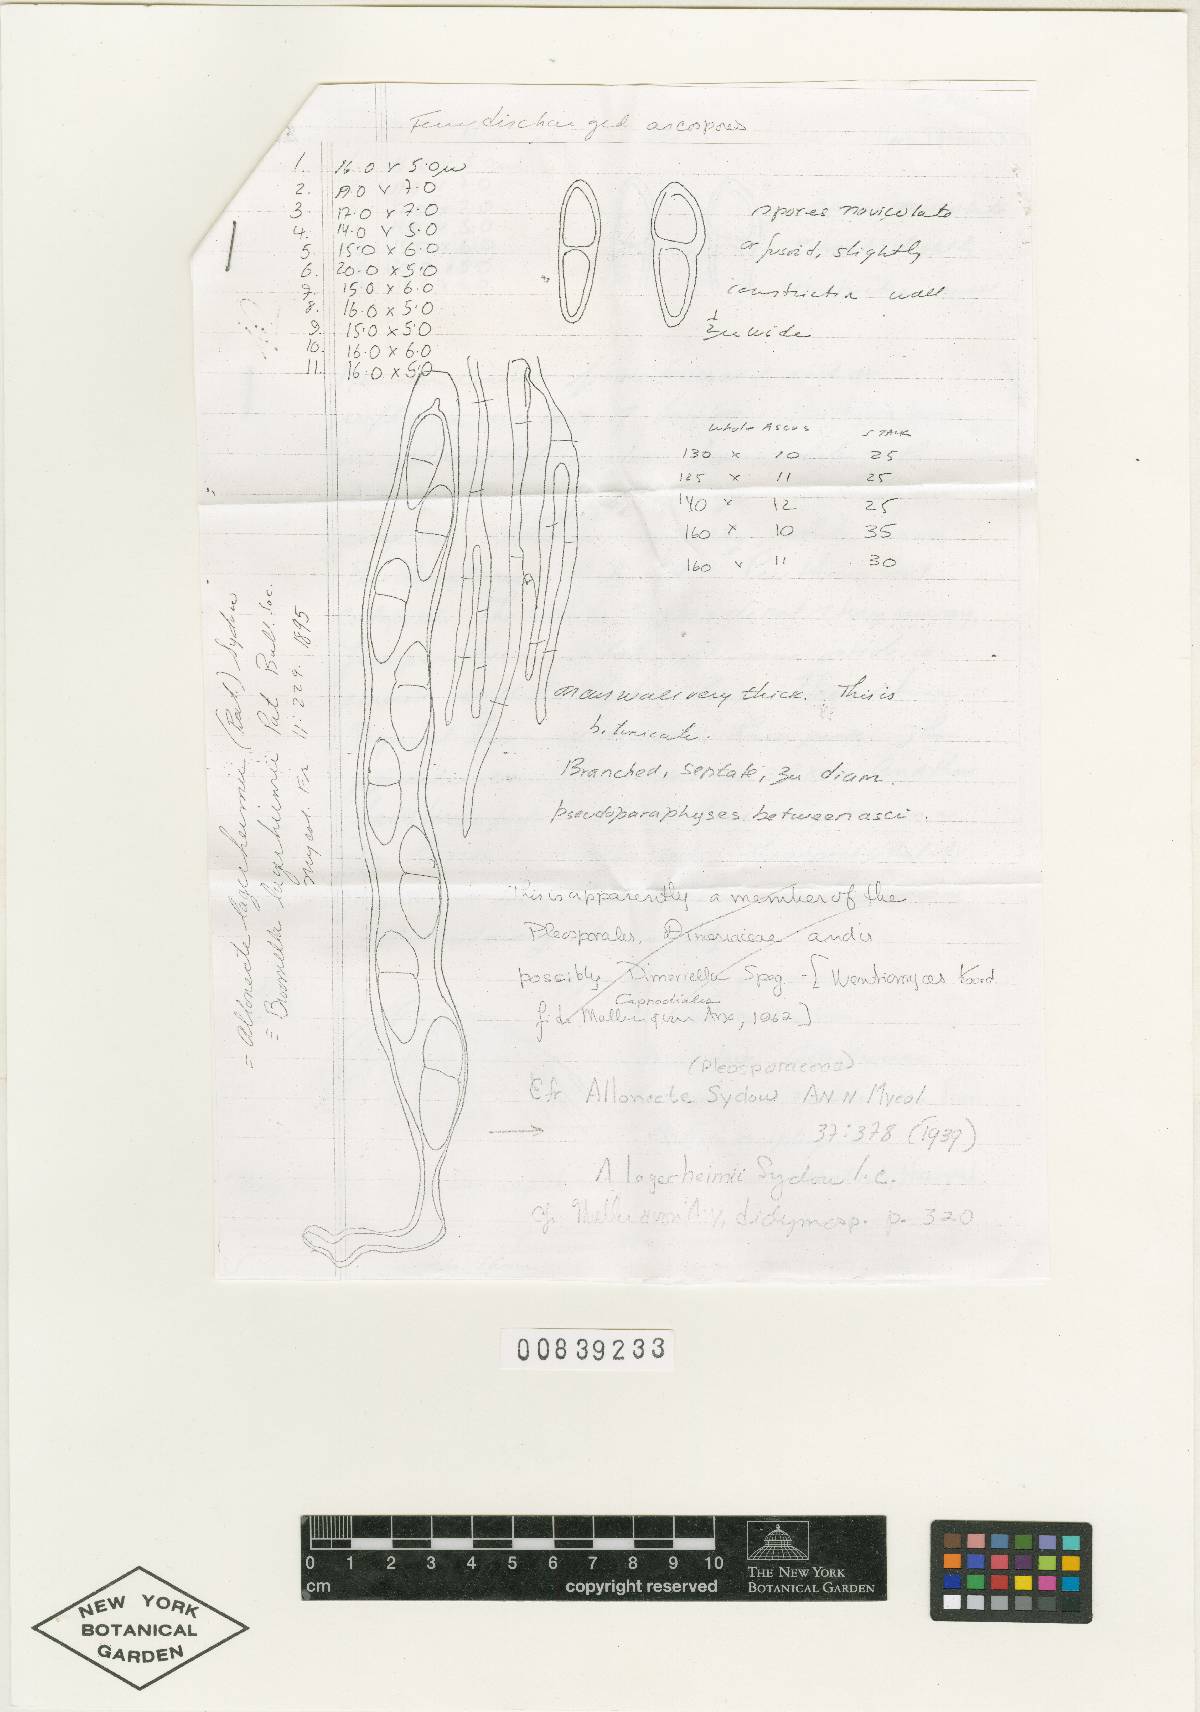 discharged ascospores
1. 16.0 x 5.0µ
2. 19.0 x 7.0
3. 17.0 x 7.0
4. 14.0 x 5.0
5. 15.0 x 6.0
6. 20.0 x 5.0
7. 15.0 x 6.0
8. 16.0 x 5.0
9. 15.0 x 5.0
10. 16.0 x 6.0
11. 16.0 x 5.0
spores naviculate
or fusoid, slightly
constriction wall
½u wide
Whole Ascus STALK
130 x 10 25
125 x 11 25
140 x 12 25
160 x 10 35
160 x 11 30
ascus wall very thick. This is
bitunicate.
Branched, septate, 3u diam.
pseudoparaphyses between asci.
This is apparently a member of the
Pleosporales, Dimeriaceae and is
possibly Dimeriella Speg - [Wentiomyces Koord.
Capnodiales
fide Muller & von Arx, 1962]
(Pleosporaceae)
Cfr Allonecte Sydow ANN Mycol
37:378 (1939)
A lagerheimii Sydow l.c.
cf. Muller & von Arx, didymosp. p. 320
= Allonecte lagerheimii (Pat) Sydow
= Broomella lagerheimii Pat Bull. Soc.
Mycol. Fr 11: 229. 1895
00839233
0 1 2 3 4 5 6 7 8 9 10
cm copyright reserved
THE NEW YORK
BOTANICAL GARDEN
NEW YORK
BOTANICAL
GARDEN